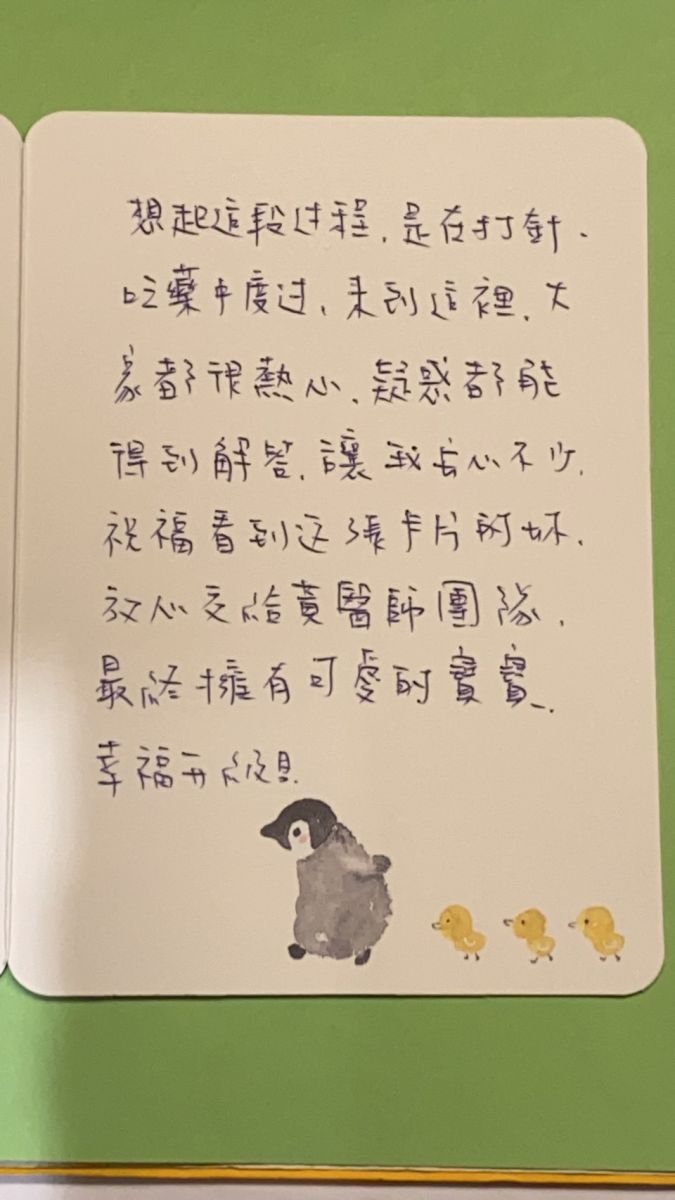 想起這段过程，是在打針、
吃藥中度过，来到這裡，大
家都很熱心，疑惑都能
得到解答，讓我安心不少，
祝福看到这張卡片的妳，
放心交給黃醫師團隊，
最終擁有可愛的寶寶，
幸福升級！